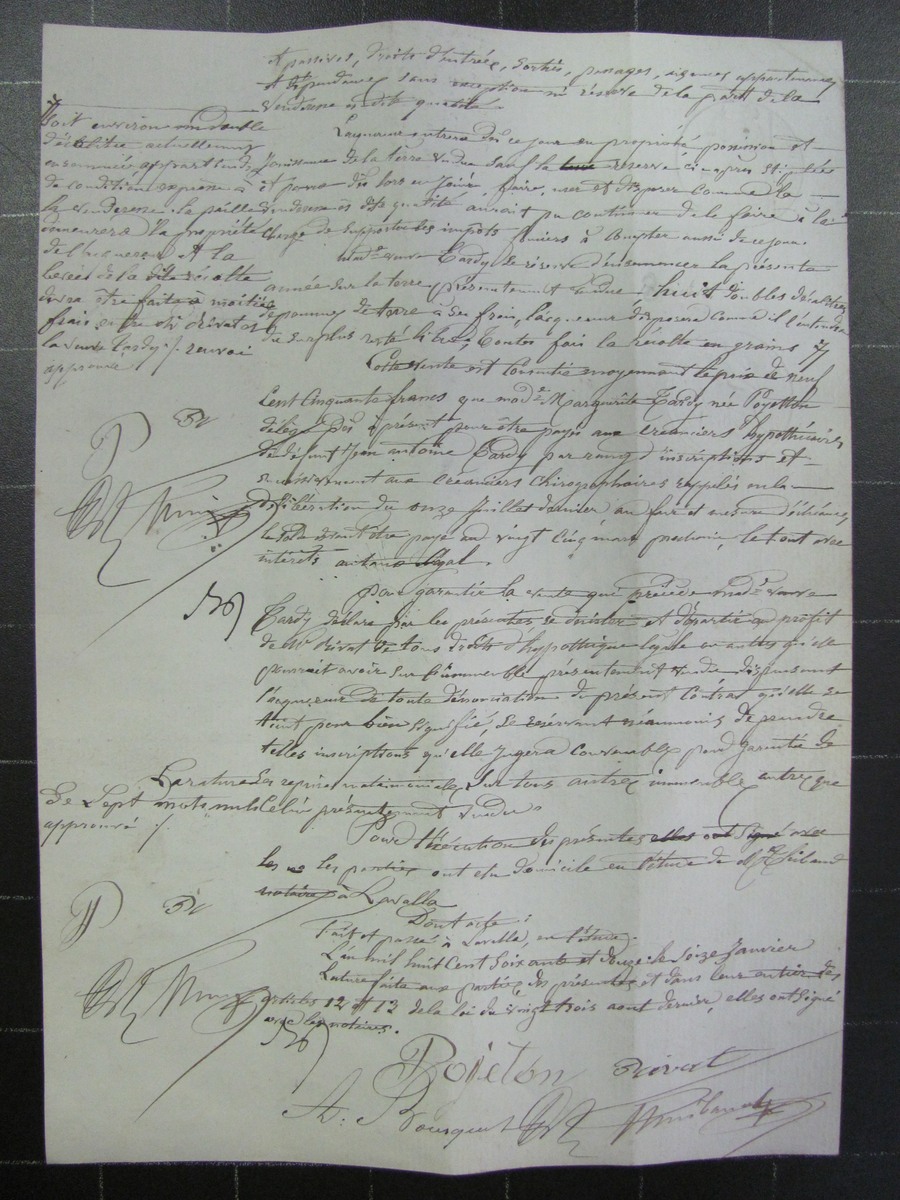 et passives, droits d'entrées, sorties, passages, aisances appartenances
et dépendances sans exception ni réserve de la part de la
venderesse és dite qualité.
L'acquéreur entrera dès ce jour en propriété possession et
jouissance de la terre vendue sauf la réserve ci après stipulée
et pourra dès lors en jouir, faire, user et disposer comme la
venderesse és dite qualité aurait pu continuer de le faire à la
charge de supporter les impots fonciers à compter aussi de ce jour.
Mad.e veuve Tardy se réserve d'ensemencer la présente
année sur la terre présentement vendue huit doubles décalitres
de pommes de terre à ses frais, l'acquéreur disposera comme il l'entendra
du surplus resté libre, toutes fois la récolte en grains
soit environ un double
décalitre actuellement
ensemencée appartiendra
de condition expresse à
la venderesse. la paille
demeurera la propriété
de l'acquéreur et la
levée de la dite récolte
devra être faite à moitié
frais entre Mr Privat et
la veuve Tardy /. renvoi
approuvé
Cette vente est consentie moyennant le prix de neuf
cent cinquante francs que mad.e Marguerite Tardy née Poyetton
délègue dès à présent pour être payés aux créanciers hypothécaires
de défunt Jean Antoine Tardy par rang d'inscriptions et
subsidiairement aux créanciers chirographaires rappelés en la
délibération du onze juillet dernier au fur et mesure d'échéances,
le solde devant être payé au vingt cinq mars prochain, le tout avec
intérêts au taux légal.
Pour garantir la vente qui précède mad.e veuve
Tardy déclare par les présentes se désister et départir au profit
de Mr Privat de tous droits d'hypothèque légale ou autres qu'elle
pourrait avoir sur l'immeuble présentement vendu dispensant
l'acquéreur de toute dénonciation du présent contrat qu'elle se
tient pour bien signifié, se réservant néanmoins de prendre
telles inscriptions qu'elle jugera convenables pour garantie de
ses reprises matrimoniales sur tous autres immeubles autres que
celui présentement vendu.
La rature
de sept mots nuls
approuvé /.
Pour l'exécution des présentes elles ont signé avec
les parties ont élu domicile en l'étude de Me Thibaud
notaire à Lavalla
Dont acte :
Fait et passé à Lavalla, en l'étude.
L'an mil huit cent soixante et douze le seize janvier
Lecture faite aux parties des présentes et dans leur entier des
articles 12 et 13 de la loi du vingt trois août dernier, elles ont signé
avec les notaires.
Poiéton Privat
A. Bourguet Thibaud